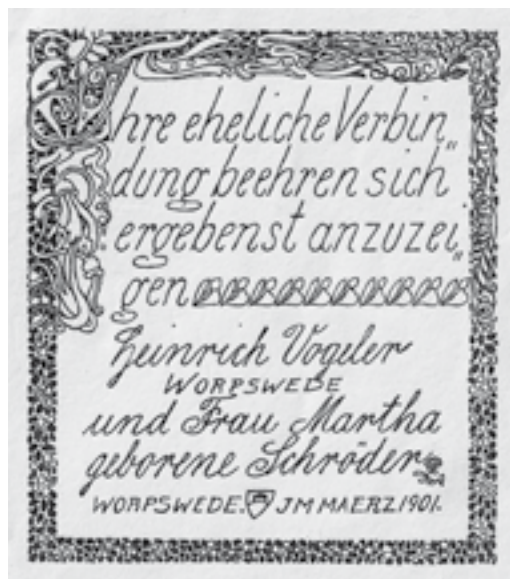 Ihre eheliche Verbin„
dung beehren sich
ergebenst anzuzei„
gen
Heinrich Vogeler
WORPSWEDE
und Frau Martha
geborene Schröder
WORPSWEDE. JM MAERZ 1901.